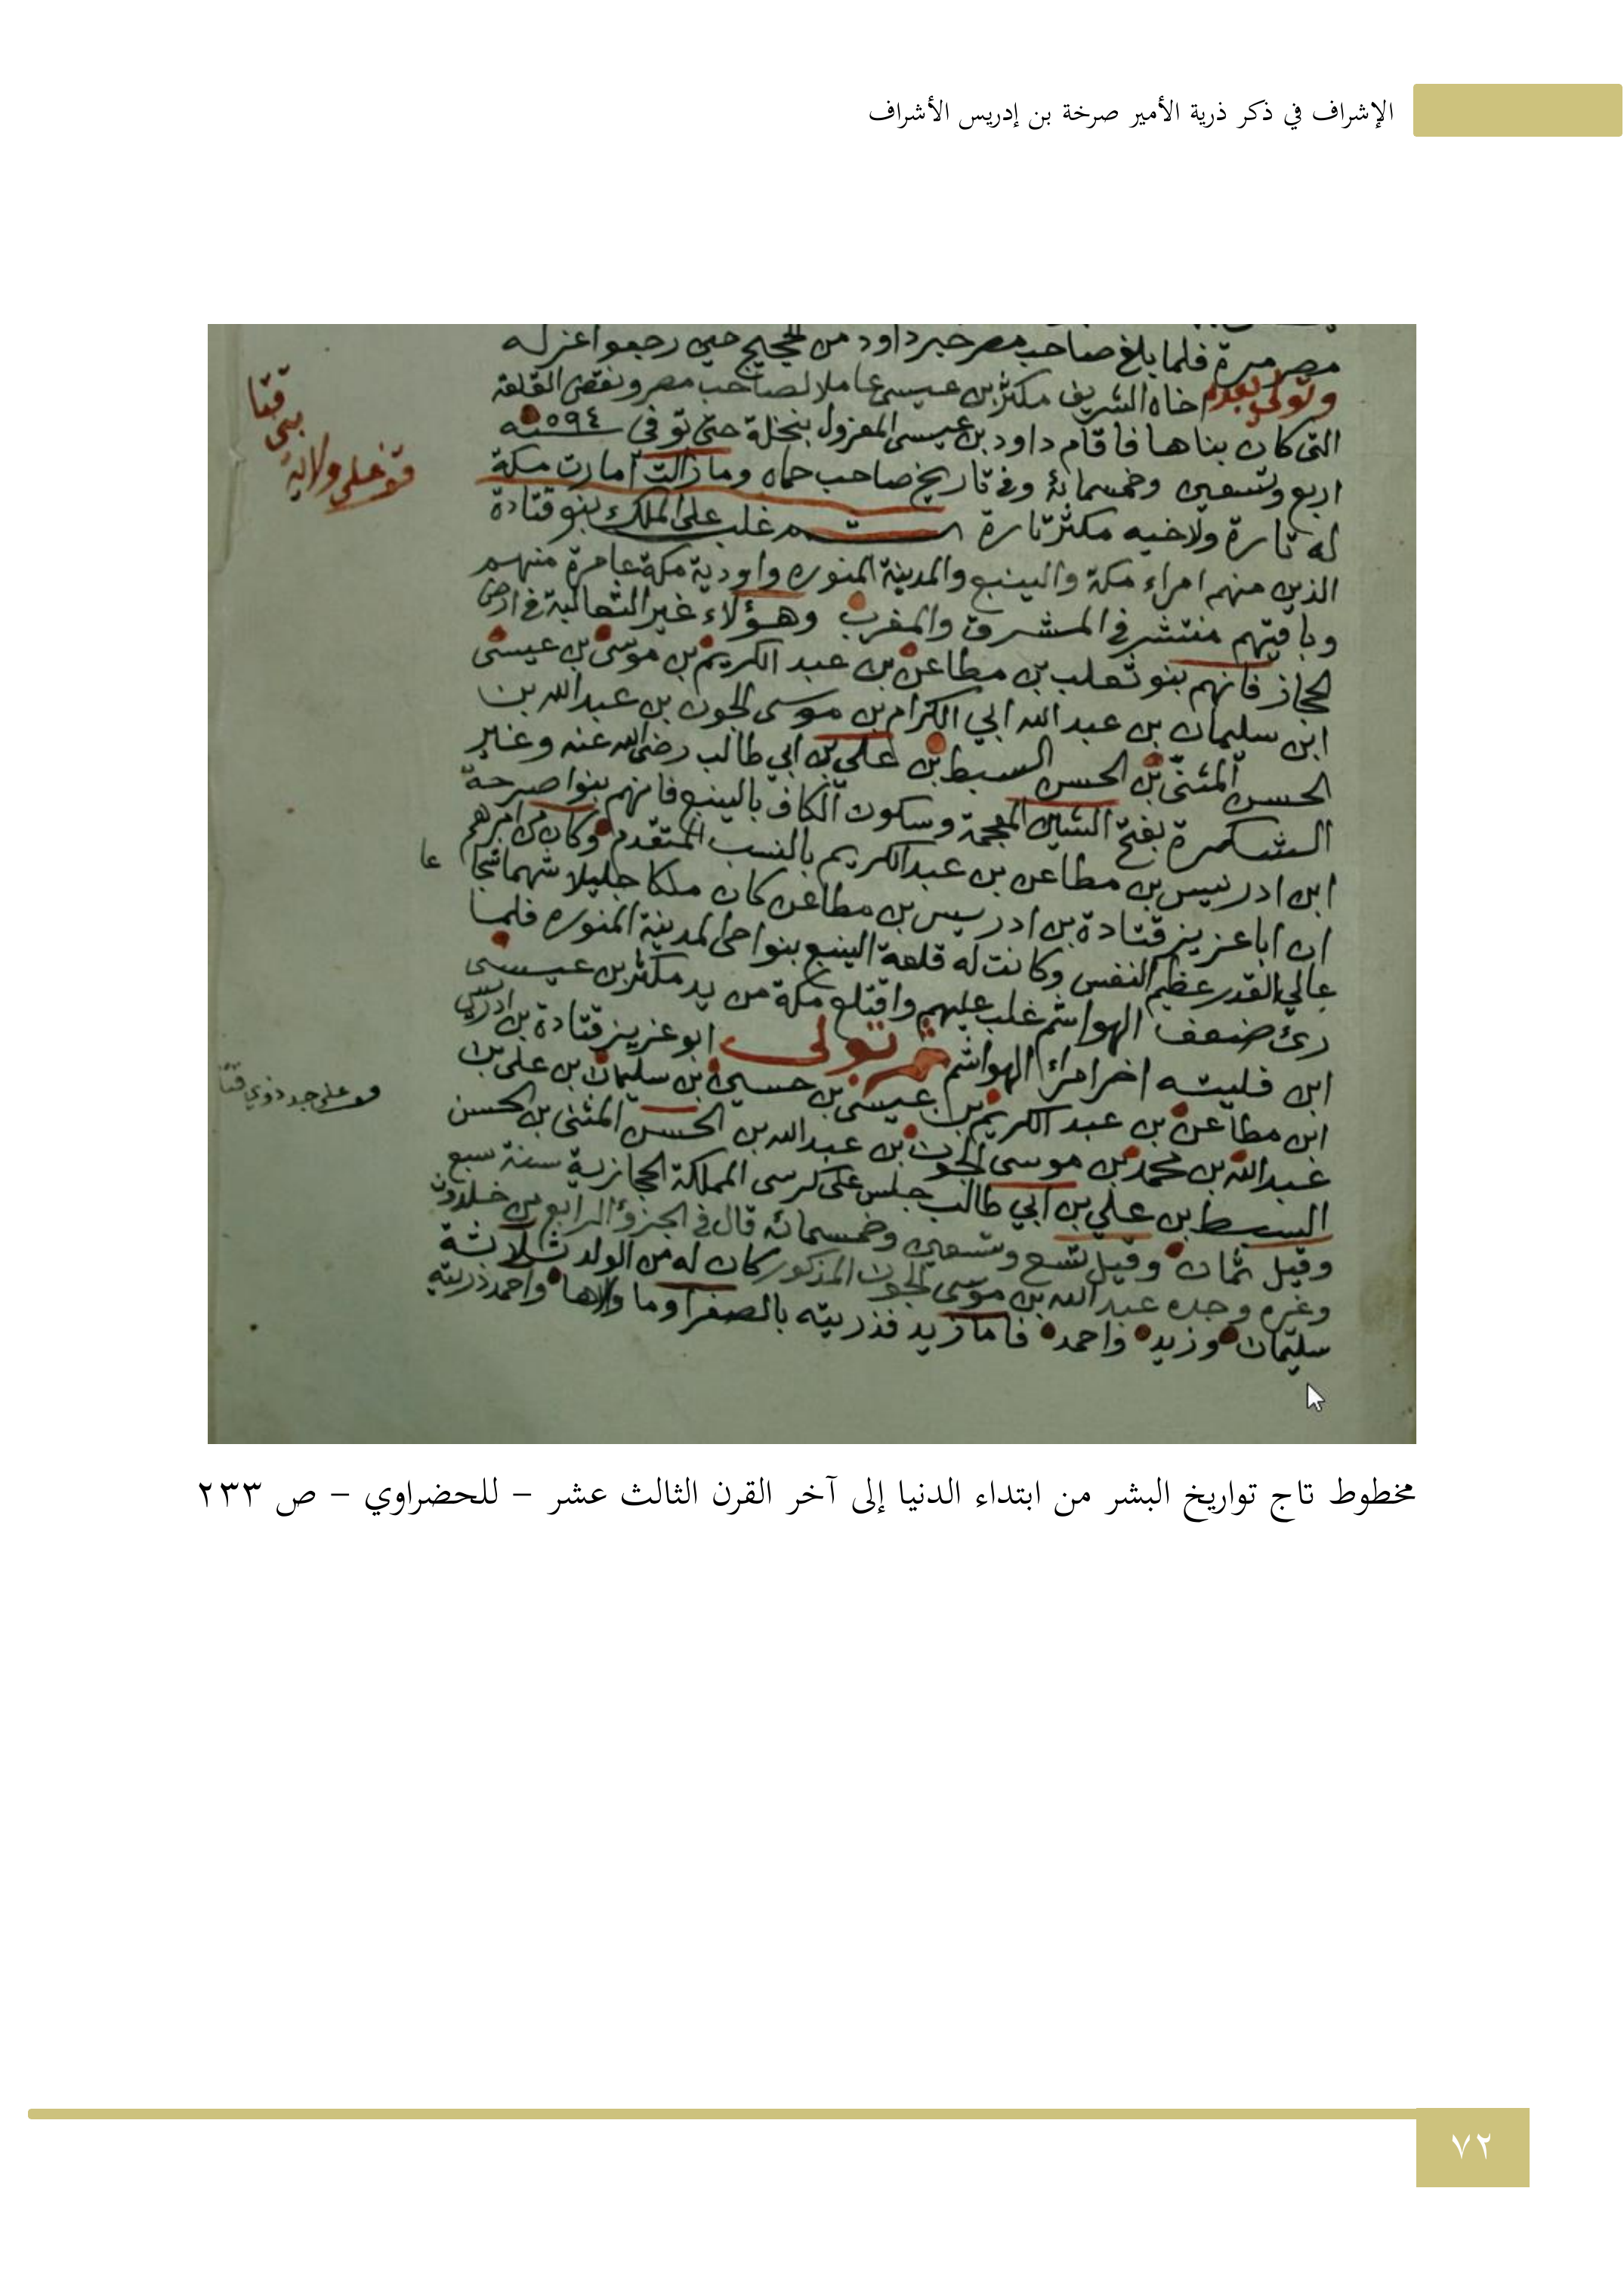 الإشراف في ذكر ذرية الأمير صرخة بن إدريس الأشراف
مصر مرة فلما بلغ صاحب مصر خبر داود من الحجيج حين رجعوا عزله
وتولى بعده اخاه الشريف مكثر بن عيسى عاملا لصاحب مصر ونقض القلعة
التى كان بناها فاقام داود بن عيسى المعزول بنخلة حتى توفى سنه ٥٩٤
اربع وتسعين وخمسمائة وفى تاريخ صاحب حماه وما زالت امارت مكة
له تارة ولاخيه مكثر تارة ثم غلب على الملك بنو قتادة
الذين منهم امراء مكة والينبع والمدينة المنوره واودية مكة عامرة منهم
وباقيتهم منتشر فى المشرق والمغرب وهؤلاء غير الثعالبة فى ارض
الحجاز فانهم بنو ثعلب بن مطاعن بن عبد الكريم بن موسى بن عيسى
ابن سليمان بن عبد الله ابي الكرام بن موسى الجون بن عبدالله بن
الحسن المثنى بن الحسن السبط بن علي بن ابي طالب رضى الله عنه وغير
الشكرة بفتح الشين المعجمة وسكون الكاف بالينبع فانهم بنوا صرحة
ابن ادريس بن مطاعن بن عبدالكريم بالنسب المتقدم وكان من امرهم
ان ابا عزيز قتادة بن ادريس بن مطاعن كان ملكا جليلا شهما شجا
عا
عالي القدر عظيم النفس وكانت له قلعة الينبع بنواحى المدينة المنوره فلما
رئ ضعف الهواشم غلب عليهم واقتلع مكة من يد مكثر بن عيسى
ابن فليته اخر امراء الهواشم ثم تولى ابو عزيز قتادة بن ادريس
ابن مطاعن بن عبد الكريم بن عيسى بن حسين بن سليمان بن على بن
عبدالله بن محمد بن موسى الجون بن عبدالله بن الحسن المثنى بن الحسن
السبط بن علي بن ابي طالب جلس على كرسى المملكة الحجازية سنة سبع
وقيل ثمان وقيل تسع وتسعين وخمسمائه قال فى الجزؤ الرابع من خلدون
وغره وجده عبد الله بن موسى الجون المذكور كان له من الولد ثلاثة
سليمان وزيد واحمد فاما زيد فذريته بالصفرا وما والاها واحمد ذريته
قف على ولاية
بنى قتا
قف على جد ذوي قتا
مخطوط تاج تواريخ البشر من ابتداء الدنيا إلى آخر القرن الثالث عشر – للحضراوي – ص ٢٣٣
٧٢